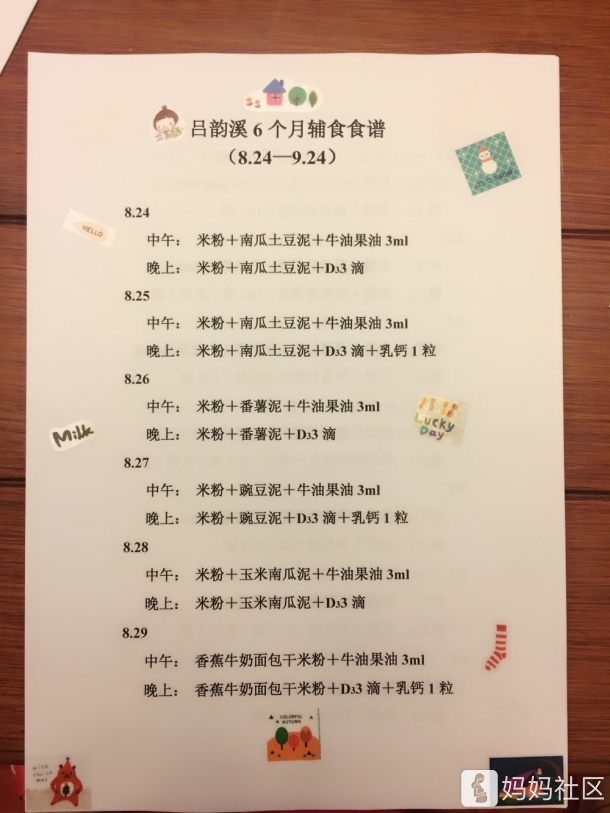 吕韵溪 6 个月辅食食谱
（8.24—9.24）
HELLO
8.24
中午： 米粉＋南瓜土豆泥＋牛油果油 3ml
晚上： 米粉＋南瓜土豆泥＋D₃3 滴
8.25
中午： 米粉＋南瓜土豆泥＋牛油果油 3ml
晚上： 米粉＋南瓜土豆泥＋D₃3 滴＋乳钙 1 粒
8.26
中午： 米粉＋番薯泥＋牛油果油 3ml
晚上： 米粉＋番薯泥＋D₃3 滴
Milk
Lucky
Day
8.27
中午： 米粉＋豌豆泥＋牛油果油 3ml
晚上： 米粉＋豌豆泥＋D₃3 滴＋乳钙 1 粒
8.28
中午： 米粉＋玉米南瓜泥＋牛油果油 3ml
晚上： 米粉＋玉米南瓜泥＋D₃3 滴
8.29
中午： 香蕉牛奶面包干米粉＋牛油果油 3ml
晚上： 香蕉牛奶面包干米粉＋D₃3 滴＋乳钙 1 粒
COLORFUL
AUTUMN
妈妈社区